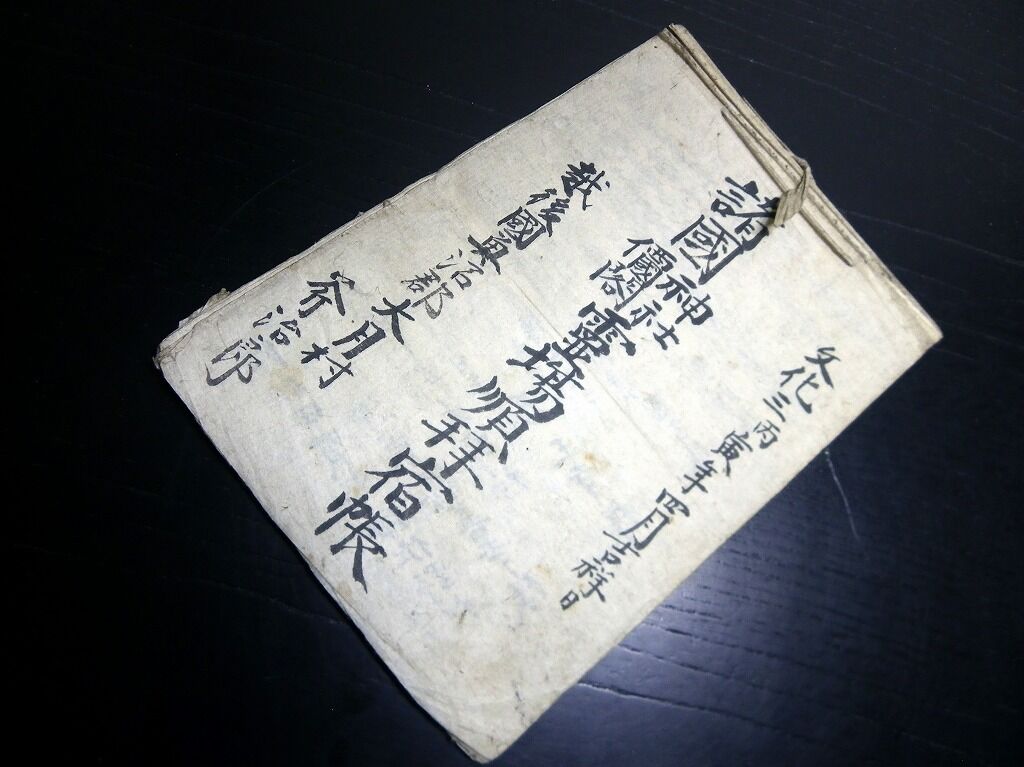 文化三丙寅年四月吉祥日
諸國神社佛閣靈場順拝宿帳
越後國魚沼郡大月村
治郎